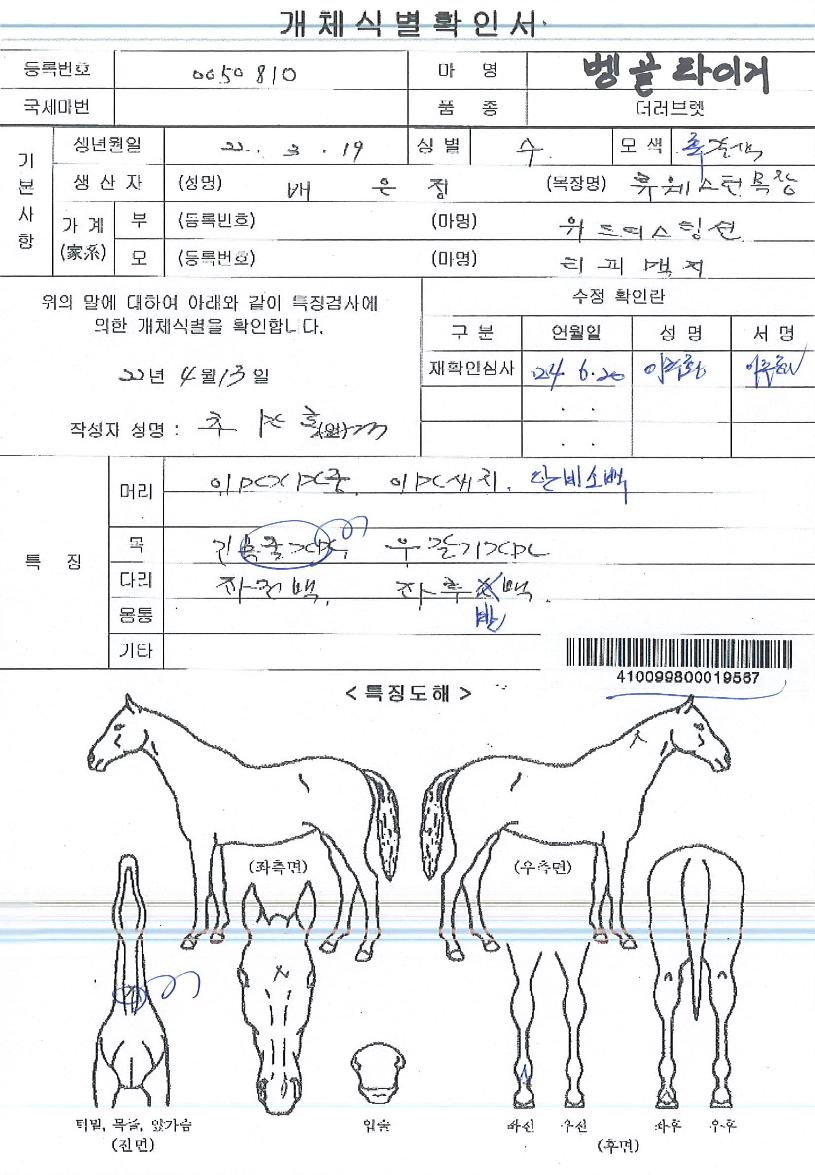 개체식별확인서
등록번호 0050810 마 명 벵골타이거
국세마번 품 종 더러브렛
기본사항
생년월일 22. 3. 19 성별 수 모색 흑갈색
생산자 (성명) 배 은 정 (목장명)
가계 (家系) 부 (등록번호) (마명) 위드디스팅션
모 (등록번호) (마명) 티피매지
위의 말에 대하여 아래와 같이 특징검사에
의한 개체식별을 확인합니다.
22년 4월 13일
작성자 성명 : (인)
수정 확인란
구 분 연월일 성 명 서 명
재확인심사 24. 6. 20
. .
. .
특 징
머리 단비소백
목
다리 좌전백, 좌후반백.
몸통
기타
410099800019567
< 특징도해 >
(좌측면) (우측면)
턱밑, 목줄, 앞가슴
(전면)
입술
좌전 우전 좌후 우후
(후면)